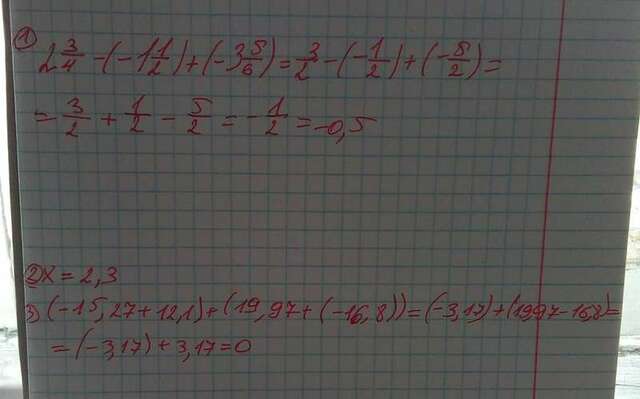 ① 2 3/4 - (-1 1/2) + (-3 5/6) = 3/2 - (-1/2) + (-5/2) =
= 3/2 + 1/2 - 5/2 = -1/2 = -0,5
② x = 2,3
3) (-15,27 + 12,1) + (19,97 + (-16,8)) = (-3,17) + (19,97 - 16,8) =
= (-3,17) + 3,17 = 0